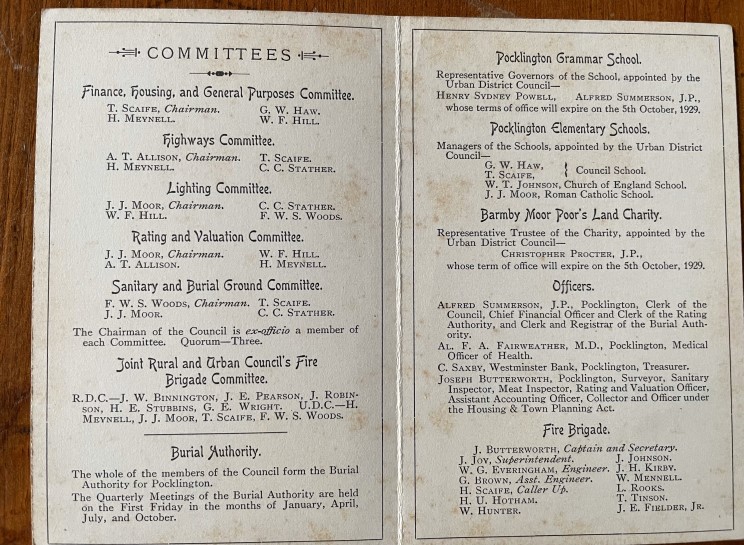 COMMITTEES
Finance, Housing, and General Purposes Committee.
T. SCAIFE, Chairman. G. W. HAW.
H. MEYNELL. W. F. HILL.
Highways Committee.
A. T. ALLISON, Chairman. T. SCAIFE.
H. MEYNELL. C. C. STATHER.
Lighting Committee.
J. J. MOOR, Chairman. C. C. STATHER.
W. F. HILL. F. W. S. WOODS.
Rating and Valuation Committee.
J. J. MOOR, Chairman. W. F. HILL.
A. T. ALLISON. H. MEYNELL.
Sanitary and Burial Ground Committee.
F. W. S. WOODS, Chairman. T. SCAIFE.
J. J. MOOR. C. C. STATHER.
The Chairman of the Council is ex-officio a member of
each Committee. Quorum—Three.
Joint Rural and Urban Council's Fire
Brigade Committee.
R.D.C.—J. W. BINNINGTON, J. E. PEARSON, J. ROBIN-
SON, H. E. STUBBINS, G. E. WRIGHT. U.D.C.—H.
MEYNELL, J. J. MOOR, T. SCAIFE, F. W. S. WOODS.
Burial Authority.
The whole of the members of the Council form the Burial
Authority for Pocklington.
The Quarterly Meetings of the Burial Authority are held
on the First Friday in the months of January, April,
July, and October.
Pocklington Grammar School.
Representative Governors of the School, appointed by the
Urban District Council—
HENRY SYDNEY POWELL, ALFRED SUMMERSON, J.P.,
whose terms of office will expire on the 5th October, 1929.
Pocklington Elementary Schools.
Managers of the Schools, appointed by the Urban District
Council—
G. W. HAW,
T. SCAIFE, } Council School.
W. T. JOHNSON, Church of England School.
J. J. MOOR, Roman Catholic School.
Barmby Moor Poor's Land Charity.
Representative Trustee of the Charity, appointed by the
Urban District Council—
CHRISTOPHER PROCTER, J.P.,
whose term of office will expire on the 5th October, 1929.
Officers.
ALFRED SUMMERSON, J.P., Pocklington, Clerk of the
Council, Chief Financial Officer and Clerk of the Rating
Authority, and Clerk and Registrar of the Burial Auth-
ority.
AL. F. A. FAIRWEATHER, M.D., Pocklington, Medical
Officer of Health.
C. SAXBY, Westminster Bank, Pocklington, Treasurer.
JOSEPH BUTTERWORTH, Pocklington, Surveyor, Sanitary
Inspector, Meat Inspector, Rating and Valuation Officer,
Assistant Accounting Officer, Collector and Officer under
the Housing & Town Planning Act.
Fire Brigade.
J. BUTTERWORTH, Captain and Secretary.
J. JOY, Superintendent. J. JOHNSON.
W. G. EVERINGHAM, Engineer. J. H. KIRBY.
G. BROWN, Asst. Engineer. W. MENNELL.
H. SCAIFE, Caller Up. L. ROOKS.
H. U. HOTHAM. T. TINSON.
W. HUNTER. J. E. FIELDER, JR.